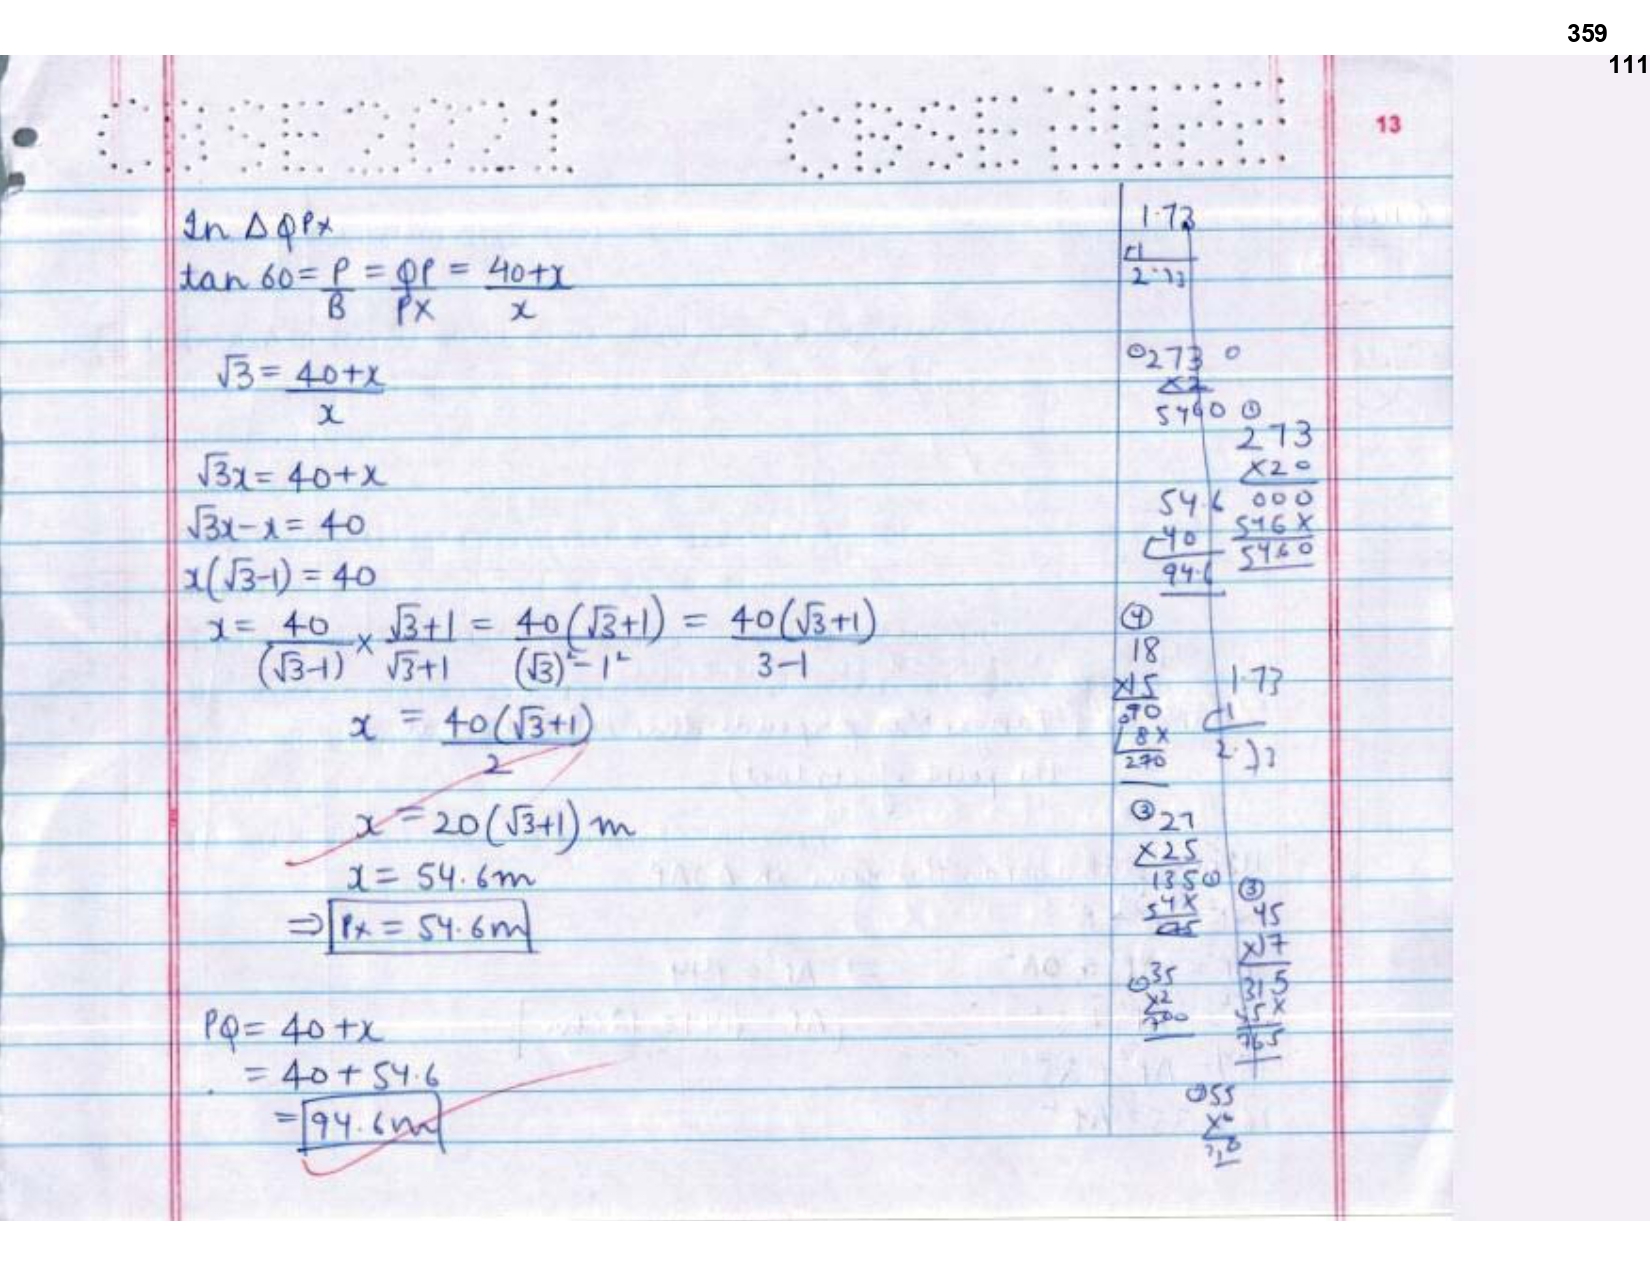 359
111
CBSE 2021 CBSE
13
In Δ QPX
tan 60 = P/B = QP/PX = 40+x/x
√3 = 40+x/x
√3x = 40+x
√3x-x = 40
x(√3-1) = 40
x = 40/(√3-1) × √3+1/√3+1 = 40(√3+1)/(√3)²-1² = 40(√3+1)/3-1
x = 40(√3+1)/2
x = 20(√3+1) m
x = 54.6m
⇒ PX = 54.6m
PQ = 40+x
= 40+54.6
= 94.6m
1.73
+1
2.73
273
×2
5460
273
×20
000
546×
5460
54.6
+40
94.6
④
18
×15
90
18×
270
1.73
+1
2.73
27
×25
135
54×
③
45
×17
315
45×
765
35
×2
700
55